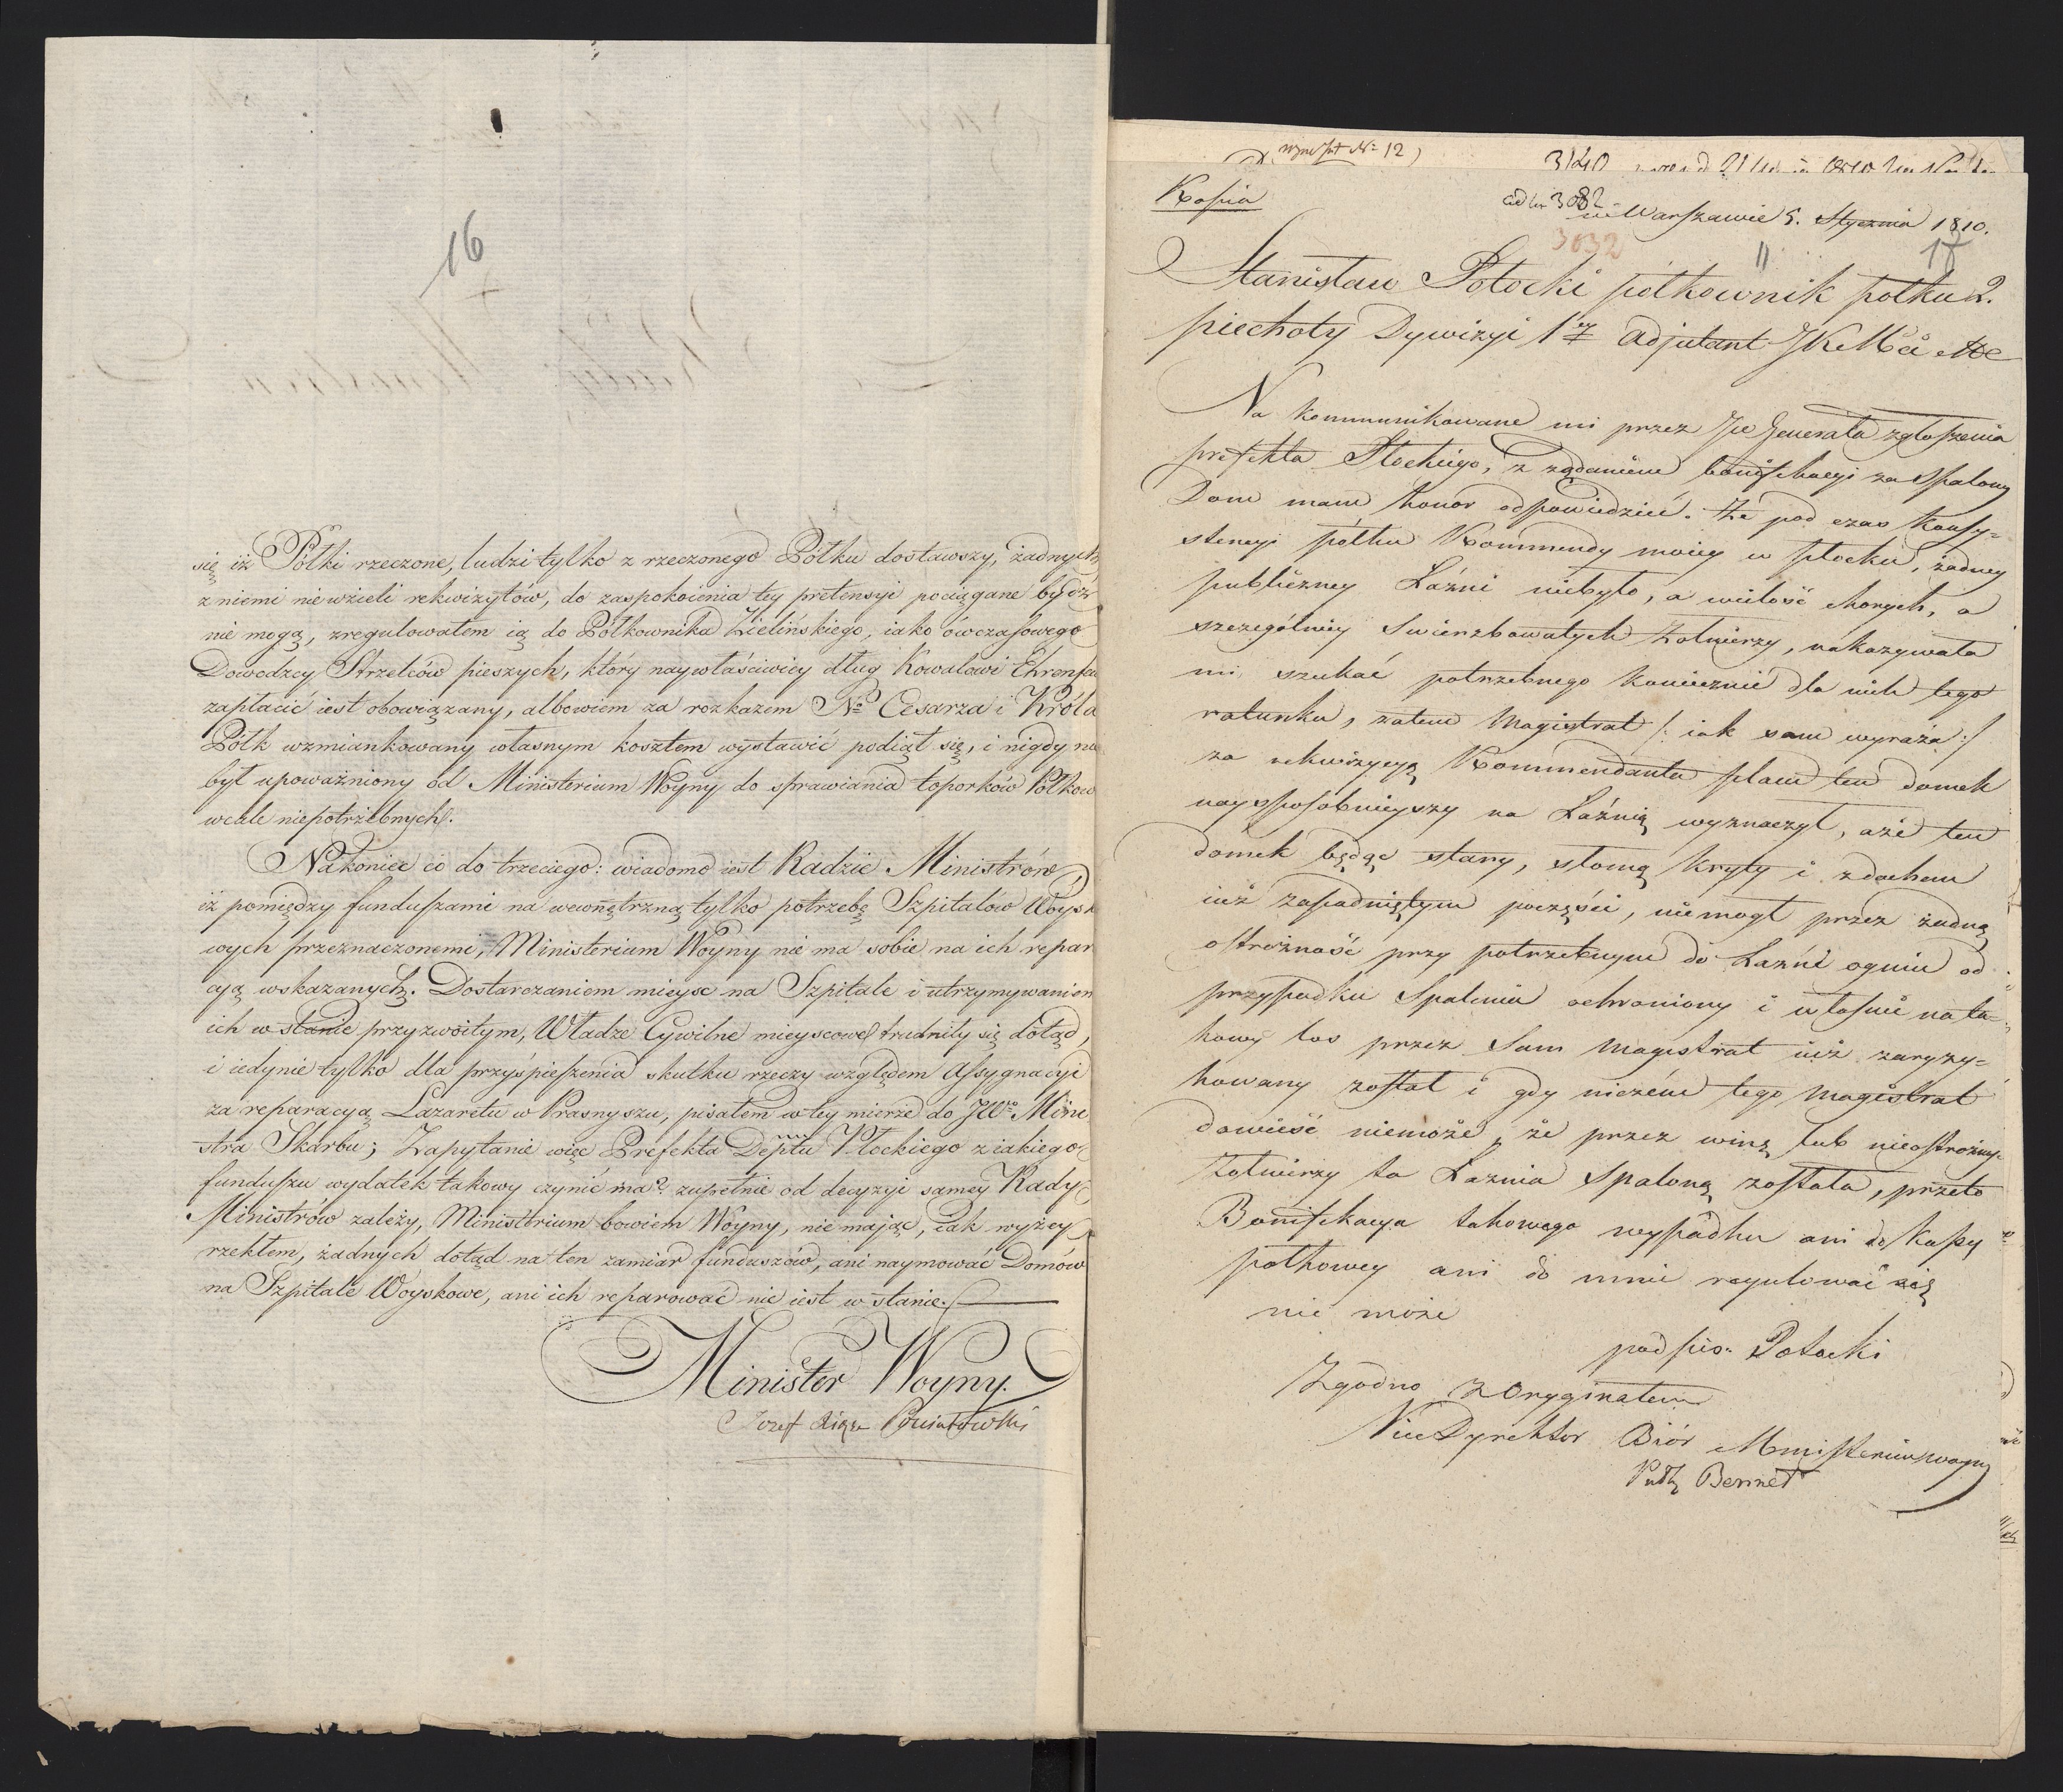 16
się iż Półki rzeczone, ludzi tylko z rzeczonego Półku dostawszy, żadnych
z niemi nie wzieli rekwizytów, do zaspokoienia tey pretensyi pociągane bydź
nie mogą, zregulowałem ią do Półkownika Zielińskiego, iako ówczasowego
Dowodzcy Strzelców pieszych, który naywłaściwiey dług Kowalowi Ehrenfa
zapłacić iest obowiązany, albowiem za rozkazem No Cesarza i Króla
Półk wzmiankowany własnym kosztem wystawić podiął się, i nigdy nie
był upoważniony od Ministerium Woyny do sprawiania toporków Półkow
wcale niepotrzebnych.
Nakoniec co do trzeciego: wiadomo iest Radzie Ministrów
iż pomiędzy funduszami na wewnętrzną tylko potrzebę Szpitalów Woysk
wych przeznaczonemi, Ministerium Woyny nie ma sobie na ich repar
cyą wskazanych. Dostarczaniem mieysc na Szpitale i utrzymywaniem
ich w stanie przyzwoitym, Władze Cywilne mieyscowe trudniły się dotąd,
i iedynie tylko dla przyśpieszenia skutku rzeczy względem Assygnacyi
za reparacyą Lazaretu w Prasnyszu, pisałem w tey mierze do JWo Mini
stra Skarbu; Zapytanie więc Prefekta Deptu Płockiego z iakiego
funduszu wydatek takowy czynić ma? zupełnie od decyzyi samey Rady
Ministrów zależy, Ministerium bowiem Woyny, nie maiąc, iak wyżey
rzekłem, żadnych dotąd na ten zamiar funduszów, ani naymować Domów
na Szpitale Woyskowe, ani ich reparować nie iest w stanie.
Minister Woyny.
Jozef Xiąże Poniatowski
No 12)
3140
Kopia
ad No 3082
w Warszawie 5. Stycznia 1810.
3032
17
Stanisław Potocki półkownik półku 2.
piechoty Dywizyi 1ey Adjutant JKMci etc
Na kommunikowane mi przez JW Generała zgłoszenia
prefekta Płockiego, z żądaniem bonifikacyi za spalony
Dom mam honor odpowiedzieć. Że pod czas konsy=
stencyi półku Kommendy moiey w płocku, żadney
publiczney Łaźni niebyło, a wielość chorych, a
szczególniey swierzbowatych żołnierzy, nakazywała
mi szukać potrzebnego koniecznie dla nich tego
ratunku, zatem Magistrat /: iak sam wyraża :/
za rekwizycyą Kommendanta placu ten domek
naysposobnieyszy na Łaźnią wyznaczył, aże ten
domek będąc stary, słomą kryty i z dachem
iuż zapadniętym poczęści, niemogł przez żadną
ostrożność przy potrzebnym do Łaźni ogniu od
przypadku spalenia ochroniony i własnie na ta=
kowy los przez sam Magistrat iuż zaryzy=
kowany został i gdy niczém tego Magistrat
dowieść niemoże, że przez winę lub nieostrożność
żołnierzy ta Łaznia spaloną została, przeto
Bonifikacya takowego wypadku ani do kassy
półkowey ani do mnie regulować się
nie może
podpis. Potocki
Zgodno z Oryginałem
Vice Dyrektor Biór Ministerium woyny
Bennet